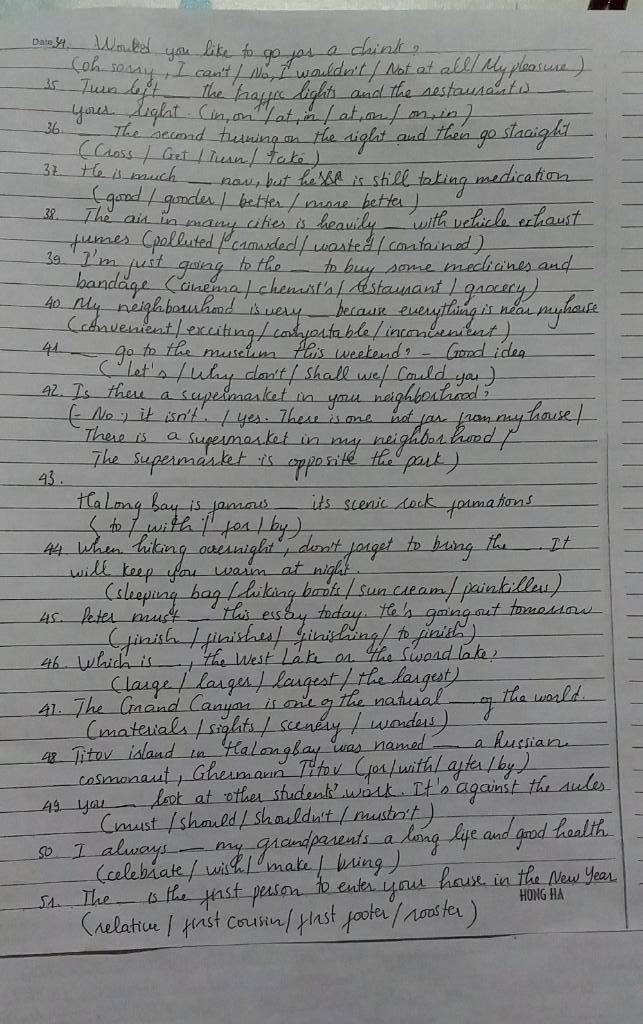 Date 34. Would you like to go for a drink?
(oh sorry, I can't / No, I wouldn't / Not at all / My pleasure)
35. Turn left __ the traffic lights and the restaurant is __
your right. (in, on / at, in / at, on / on, in)
36. __ The second turning on the right and then go straight
(Cross / Get / Turn / Take)
37. He is much __ now, but he is still taking medication
(good / gooder / better / more better)
38. The air in many cities is heavily __ with vehicle exhaust
fumes (polluted / crowded / wasted / contained)
39. I'm just going to the __ to buy some medicines and
bandage (cinema / chemist's / restaurant / grocery)
40. My neighbourhood is very __ because everything is near my house
(convenient / exciting / comfortable / inconvenient)
41. __ go to the museum this weekend? - Good idea
(let's / Why don't / Shall we / Could you)
42. Is there a supermarket in your neighborhood?
(- No, it isn't. / yes. There is one not far from my house /
There is a supermarket in my neighborhood /
The supermarket is opposite the park)
43.
Ha Long Bay is famous __ its scenic rock formations
(to / with / for / by)
44. When hiking overnight, don't forget to bring the __. It
will keep you warm at night.
(sleeping bag / hiking boots / sun cream / painkiller)
45. Peter must __ this essay today. He's going out tomorrow
(finish / finishes / finishing / to finish)
46. Which is __, the West Lake or the Sword lake?
(large / larger / largest / the largest)
47. The Grand Canyon is one of the natural __ of the world.
(materials / sights / scenery / wonders)
48. Titov island in Ha Long Bay was named __ a Russian
cosmonaut, Ghermann Titov (for / with / after / by)
49. you __ look at other students' work. It's against the rules
(must / should / shouldn't / mustn't)
50. I always __ my grandparents a long life and good health
(celebrate / wish / make / bring)
51. The __ is the first person to enter your house in the New Year
HONG HA
(relative / first cousin / first footer / rooster)